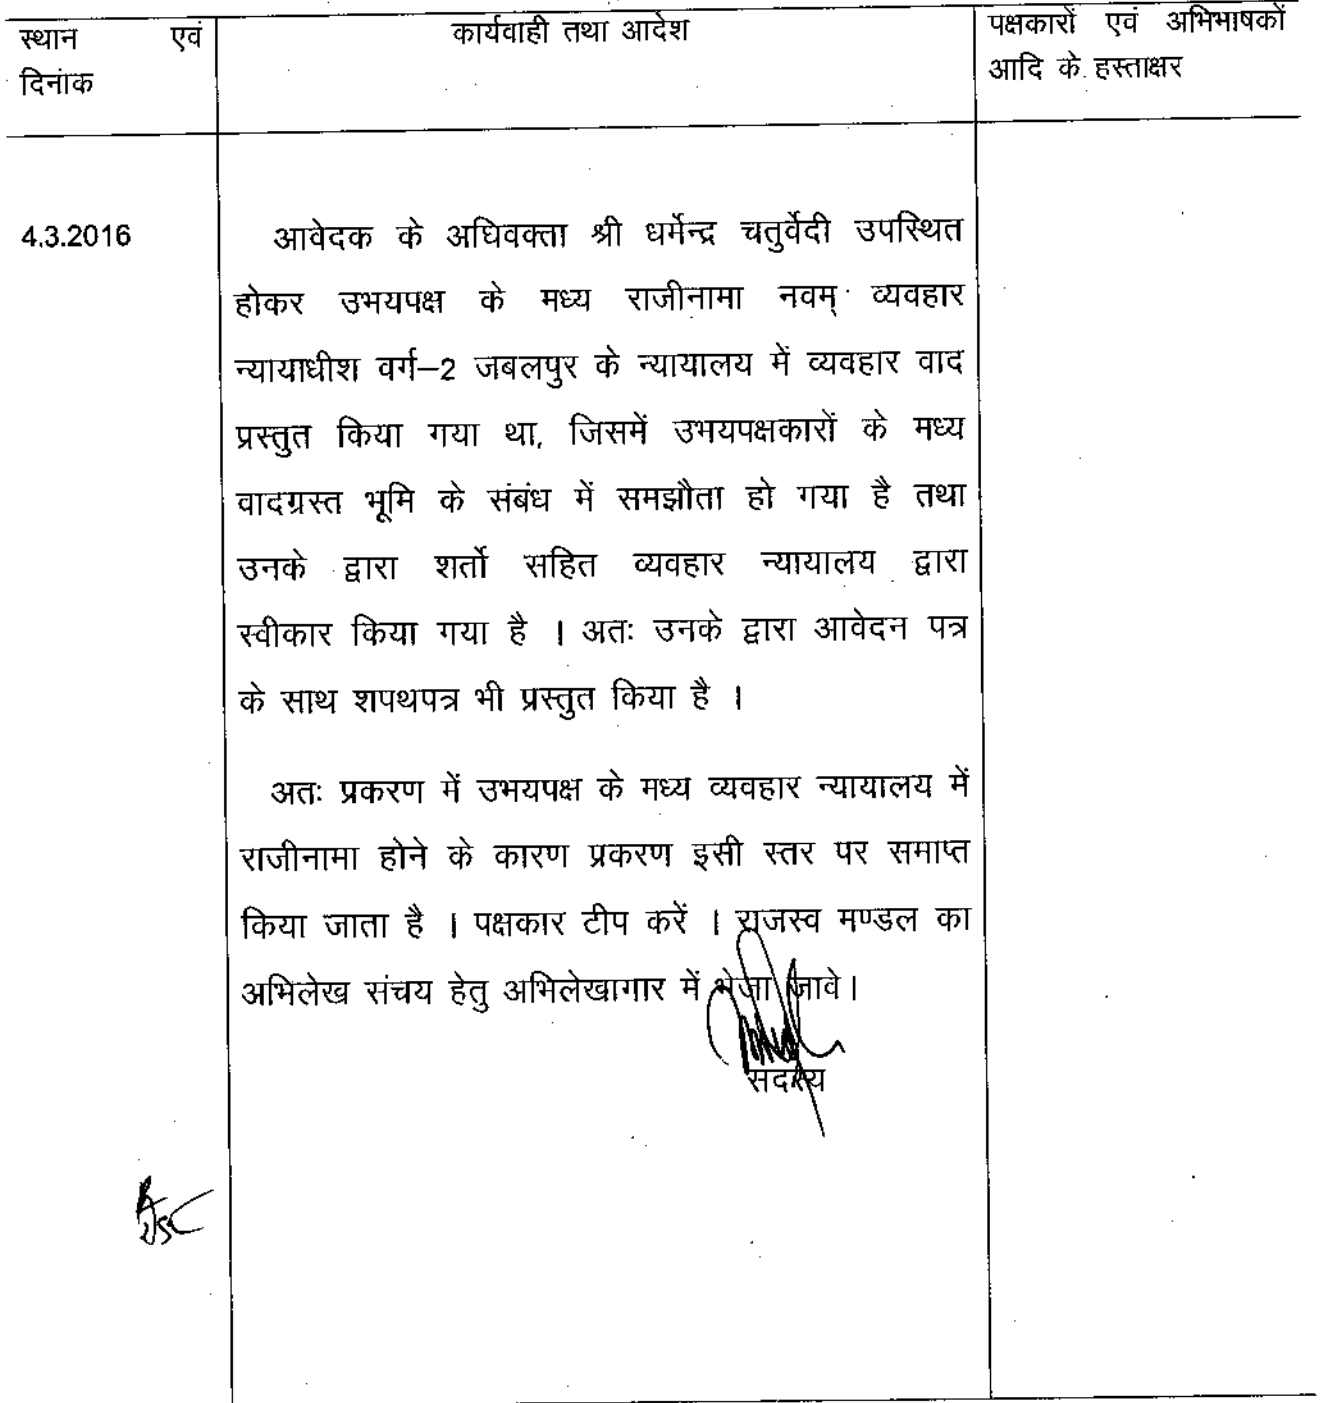 स्थान एवं
दिनांक
कार्यवाही तथा आदेश
पक्षकारों एवं अभिभाषकों
आदि के हस्ताक्षर
4.3.2016
आवेदक के अधिवक्ता श्री धर्मेन्द्र चतुर्वेदी उपस्थित
होकर उभयपक्ष के मध्य राजीनामा नवम् व्यवहार
न्यायाधीश वर्ग–2 जबलपुर के न्यायालय में व्यवहार वाद
प्रस्तुत किया गया था, जिसमें उभयपक्षकारों के मध्य
वादग्रस्त भूमि के संबंध में समझौता हो गया है तथा
उनके द्वारा शर्तो सहित व्यवहार न्यायालय द्वारा
स्वीकार किया गया है । अतः उनके द्वारा आवेदन पत्र
के साथ शपथपत्र भी प्रस्तुत किया है ।
अतः प्रकरण में उभयपक्ष के मध्य व्यवहार न्यायालय में
राजीनामा होने के कारण प्रकरण इसी स्तर पर समाप्त
किया जाता है । पक्षकार टीप करें । राजस्व मण्डल का
अभिलेख संचय हेतु अभिलेखागार में भेजा जावे।
सदस्य